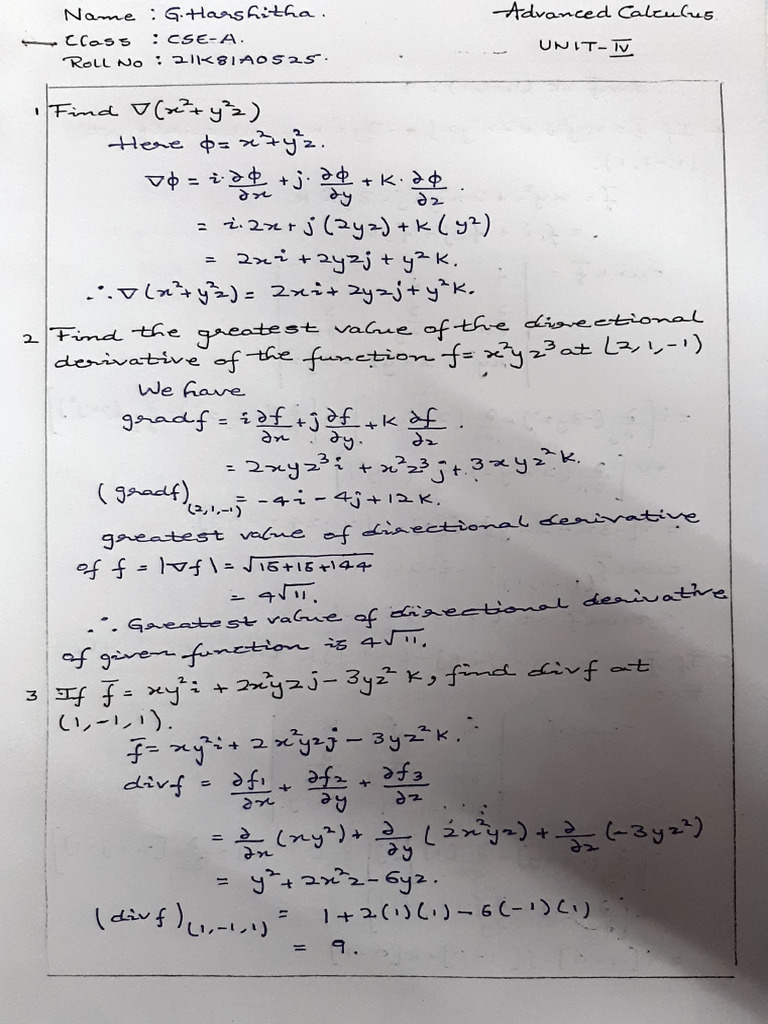 Name : G.Harshitha.
Advanced Calculus
Class : CSE-A.
UNIT-IV
Roll No : 21K81A0525.
1 Find ∇(x²+y²z)
Here ϕ=x²+y²z.
∇ϕ = i·∂ϕ/∂x + j·∂ϕ/∂y + k·∂ϕ/∂z.
= i·2x + j(2yz) + k(y²)
= 2xi + 2yzj + y²k.
∴ ∇(x²+y²z) = 2xi + 2yzj + y²k.
2 Find the greatest value of the directional
derivative of the function f=x²yz³ at (2,1,-1)
We have
gradf = i ∂f/∂x + j ∂f/∂y. + k ∂f/∂z.
= 2xyz³i + x²z³j + 3xyz²k.
(gradf)(2,1,-1) = -4i - 4j + 12k.
greatest value of directional derivative
of f = |∇f| = √16+16+144
= 4√11.
∴ Greatest value of directional derivative
of given function is 4√11.
3 If f̄ = xy²i + 2x²yzj - 3yz²k, find divf at
(1,-1,1).
f̄ = xy²i + 2x²yzj - 3yz²k.
divf = ∂f₁/∂x + ∂f₂/∂y + ∂f₃/∂z
= ∂/∂x (xy²) + ∂/∂y (2x²yz) + ∂/∂z (-3yz²)
= y² + 2x²z - 6yz.
(divf)(1,-1,1) = 1+2(1)(1)-6(-1)(1)
= 9.